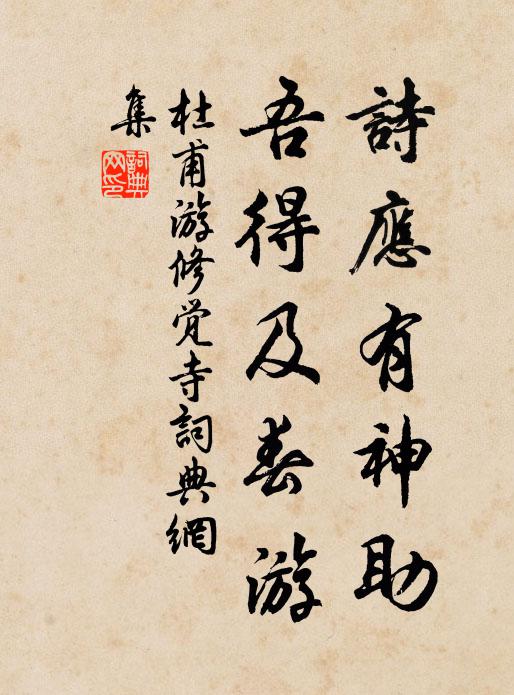 詩應有神助
吾得及春游
杜甫游修覚寺詞典網
集
詞典
网印